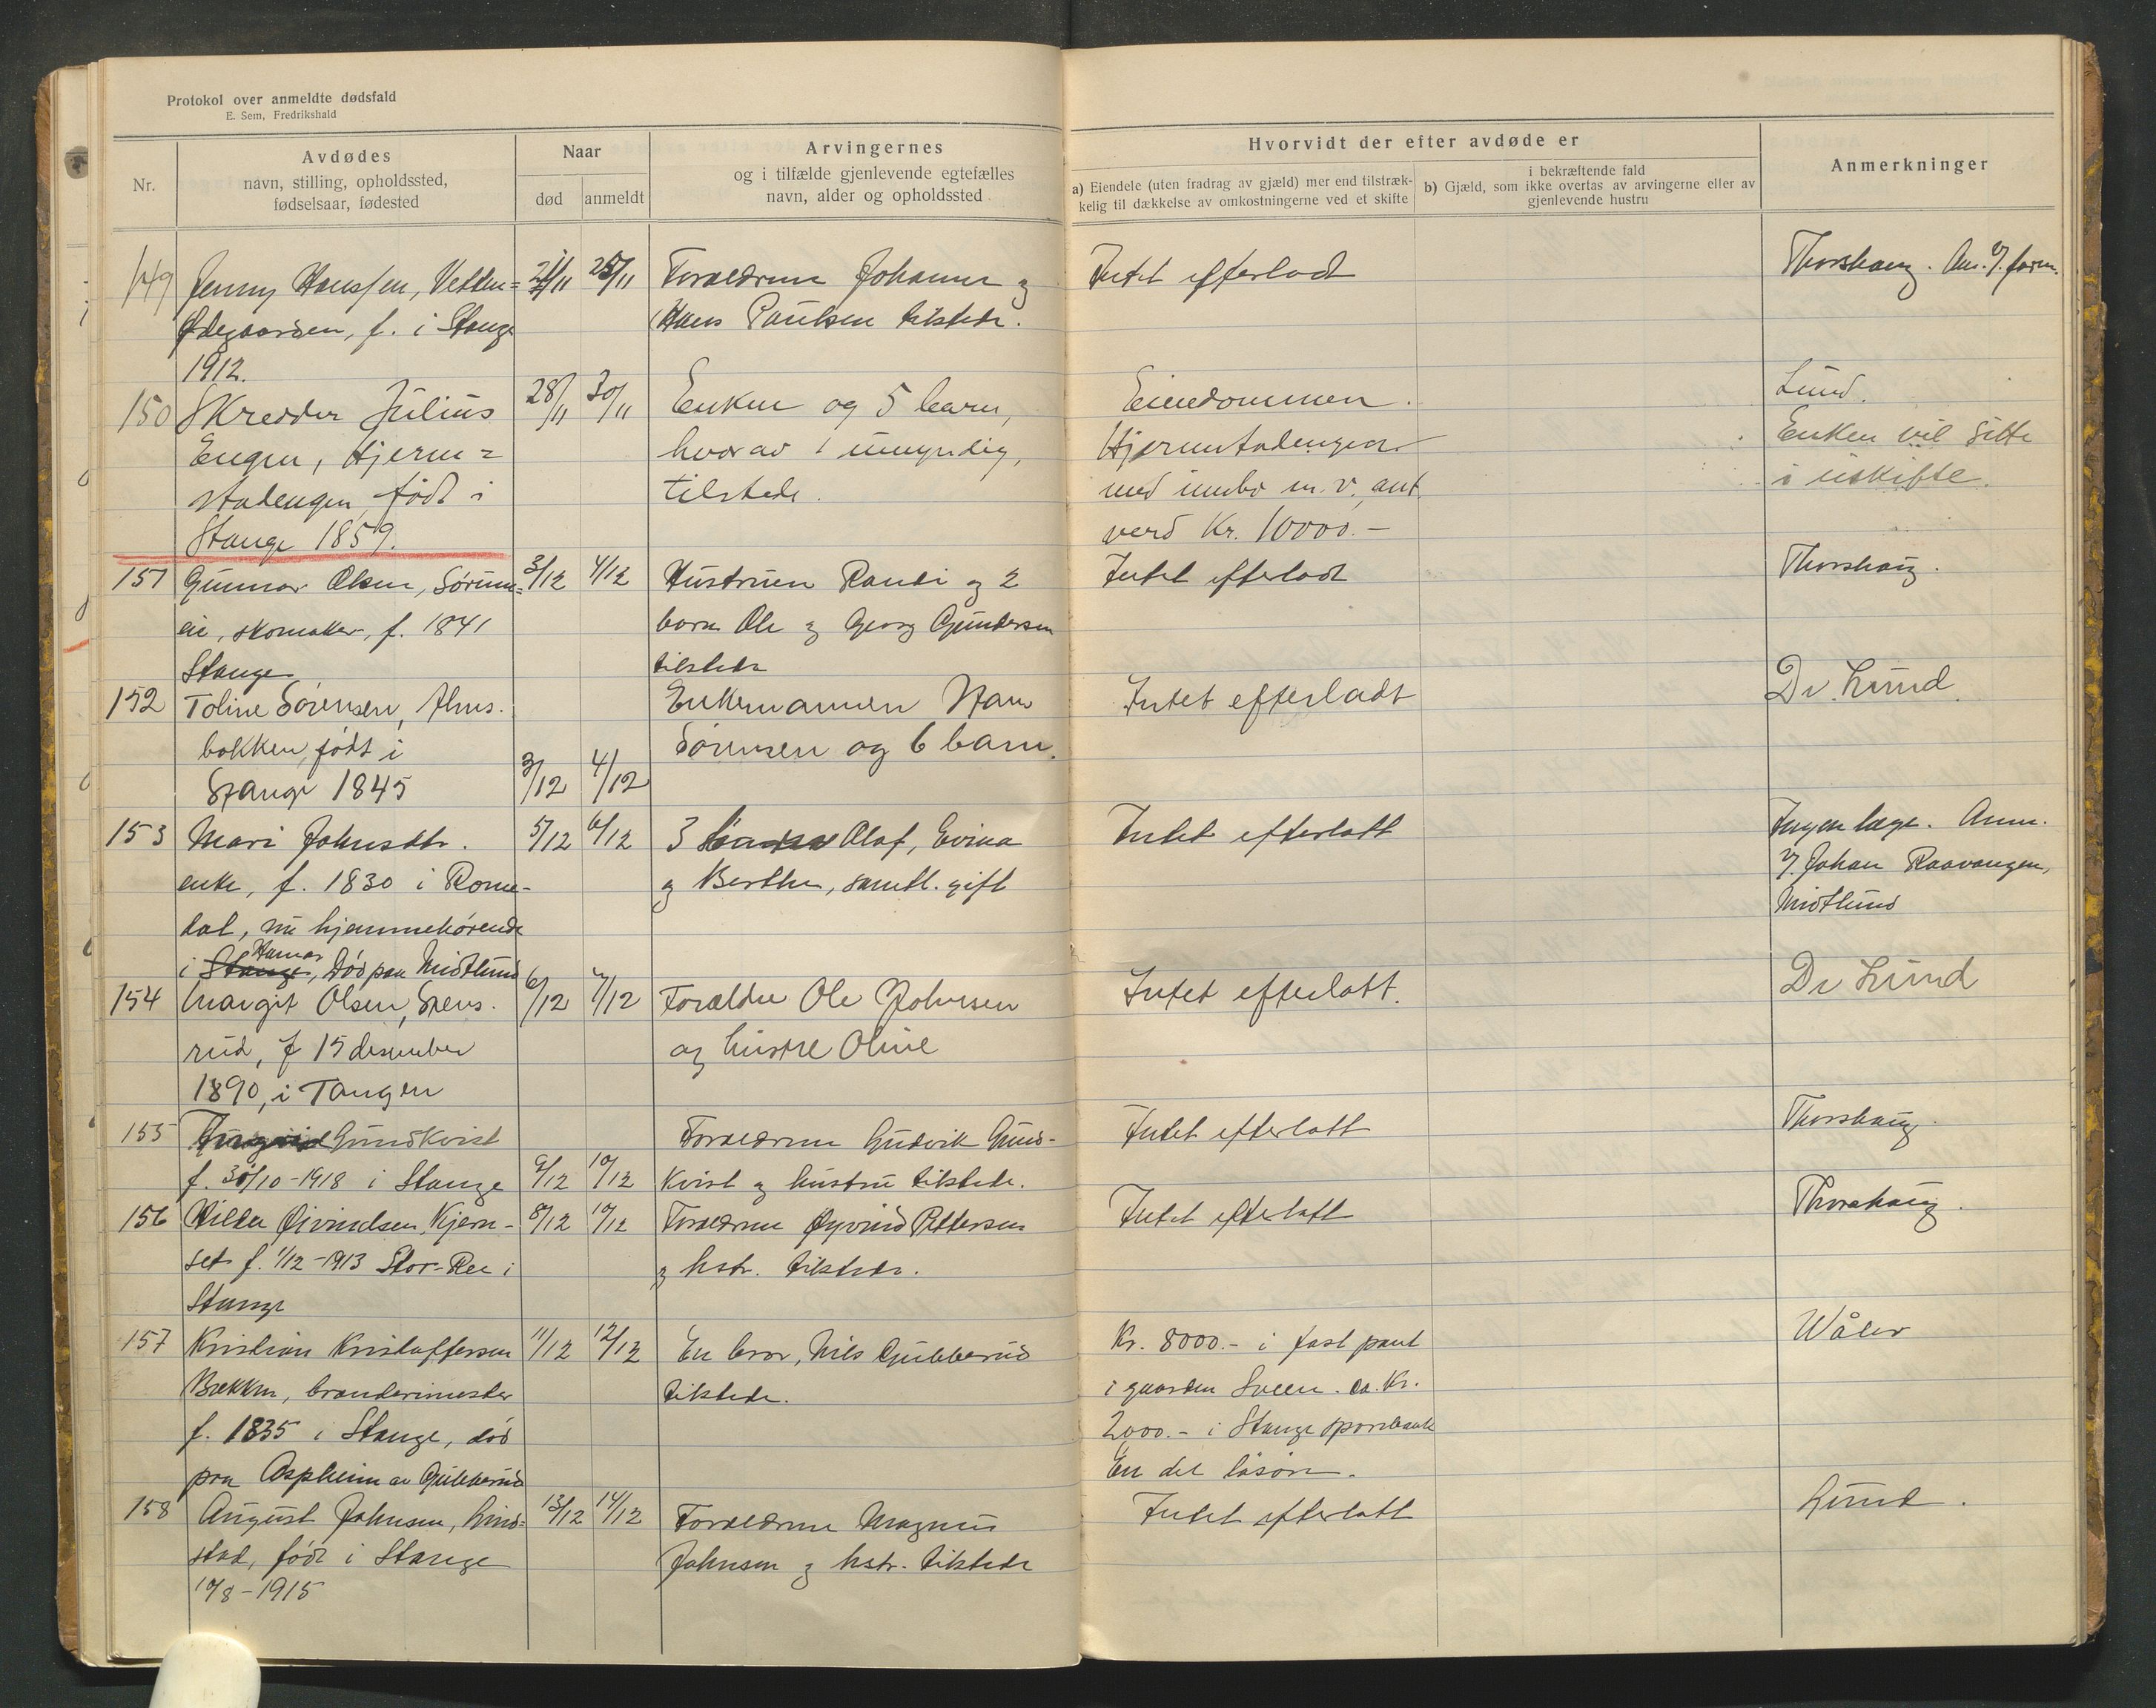 Protokol over anmeldte dødsfald
E. Sem, Fredrikshald
Nr.
Avdødes
navn, stilling, opholdssted,
fødselsaar, fødested
Naar
død anmeldt
Arvingernes
og i tilfælde gjenlevende egtefælles
navn, alder og opholdssted
Hvorvidt der efter avdøde er
a) Eiendele (uten fradrag av gjæld) mer end tilstræk-
kelig til dækkelse av omkostningerne ved et skifte
i bekræftende fald
b) Gjæld, som ikke overtas av arvingerne eller av
gjenlevende hustru
Anmerkninger
149 Jenny Hanssen, 21/11 25/11 Forældrene Johanne og Intet efterladt Thorshaug.
Ødegaarden, f. i Stange Hans Paulsen tilstede.
1912.
150 Skredder Julius 28/11 30/11 Enken og 5 barn, Eiendommen Lund.
Engen, Hjerm= hvorav 1 umyndig, Hjermstadengen Enken vil sitte
stadengen, født i tilstede. med inbo m.v. ant. i uskifte.
Stange 1859. verd Kr. 10000.-
151 Gunnar Olsen, Sørum= 3/12 4/12 Hustruen Randi og 2 Intet efterladt Thorshaug.
eie, skomaker, f. 1841 barn Ole og Georg Gundersen
Stange tilstede
152 Toline Sørensen, Alms. Enkemannen Hans Intet efterladt Dr. Lund
bakken, født i Sørensen og 6 barn.
Stange 1845 3/12 4/12
153 Mari Johnsdtr. 5/12 6/12 3 Olaf, Evina Intet efterlatt Ingen læge. Anm.
enke, f. 1830 i Rome- og Berthe, samtl. gift v/ Johan Raavangen,
dal, nu hjemmehørende Midtlund
i Stange Hamar, død paa Midtlund
154 Margit Olsen, Stens. 6/12 7/12 Forældre Ole Johnsen Intet efterlatt. Dr Lund
rud, f 15 desember og hustru Oline
1890, i Tangen
155 Lundkvist Forældrene Ludvik Lund- Intet efterlatt Thorshaug.
f. 30/10-1918 i Stange 9/12 10/12 kvist og hustru tilstede.
156 Hilda Øivindsen, Kjern- 8/12 10/12 Forældrene Øyvind Pettersen Intet efterlatt Thorshaug.
set f. 1/12-1913 Stor-Ree i og hstr. tilstede.
Stange
157 Kristian Kristoffersen 11/12 12/12 En bror, Nils Gubberud Kr. 8000.- i fast pant Wåler
Bækken, brænderimester tilstede. i gaarden Sveen. ca. Kr.
f. 1835 i Stange, død 2000.- i Stange sparebank
paa Aspheim av Gubberud En del løsøre.
158 August Johnsen, Lind= 13/12 14/12 Forældrene Magnus Intet efterlatt Lund.
stad, født i Stange Johnsen og hstr. tilstede
10/8-1915